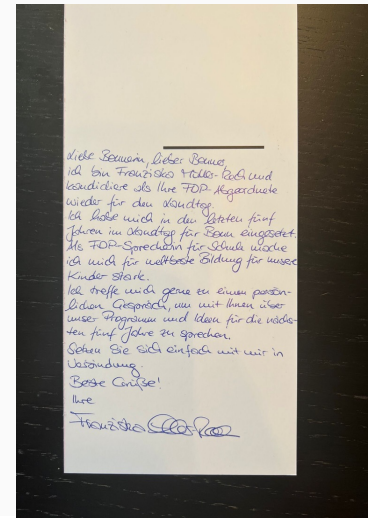 Liebe Bonnerin, lieber Bonner,
ich bin Franziska Müller-Rech und
kandidiere als Ihre FDP-Abgeordnete
wieder für den Landtag.
Ich habe mich in den letzten fünf
Jahren im Landtag für Bonn eingesetzt.
Als FDP-Sprecherin für Schule mache
ich mich für weltbeste Bildung für unsere
Kinder stark.
Ich treffe mich gerne zu einem persön-
lichen Gespräch, um mit Ihnen über
unser Programm und Ideen für die nächs-
ten fünf Jahre zu sprechen.
Setzen Sie sich einfach mit mir in
Verbindung.
Beste Grüße!
Ihre
Franziska